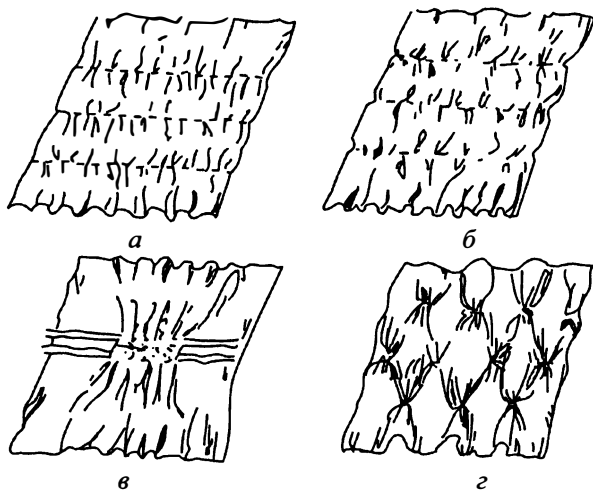 а
б
в
г